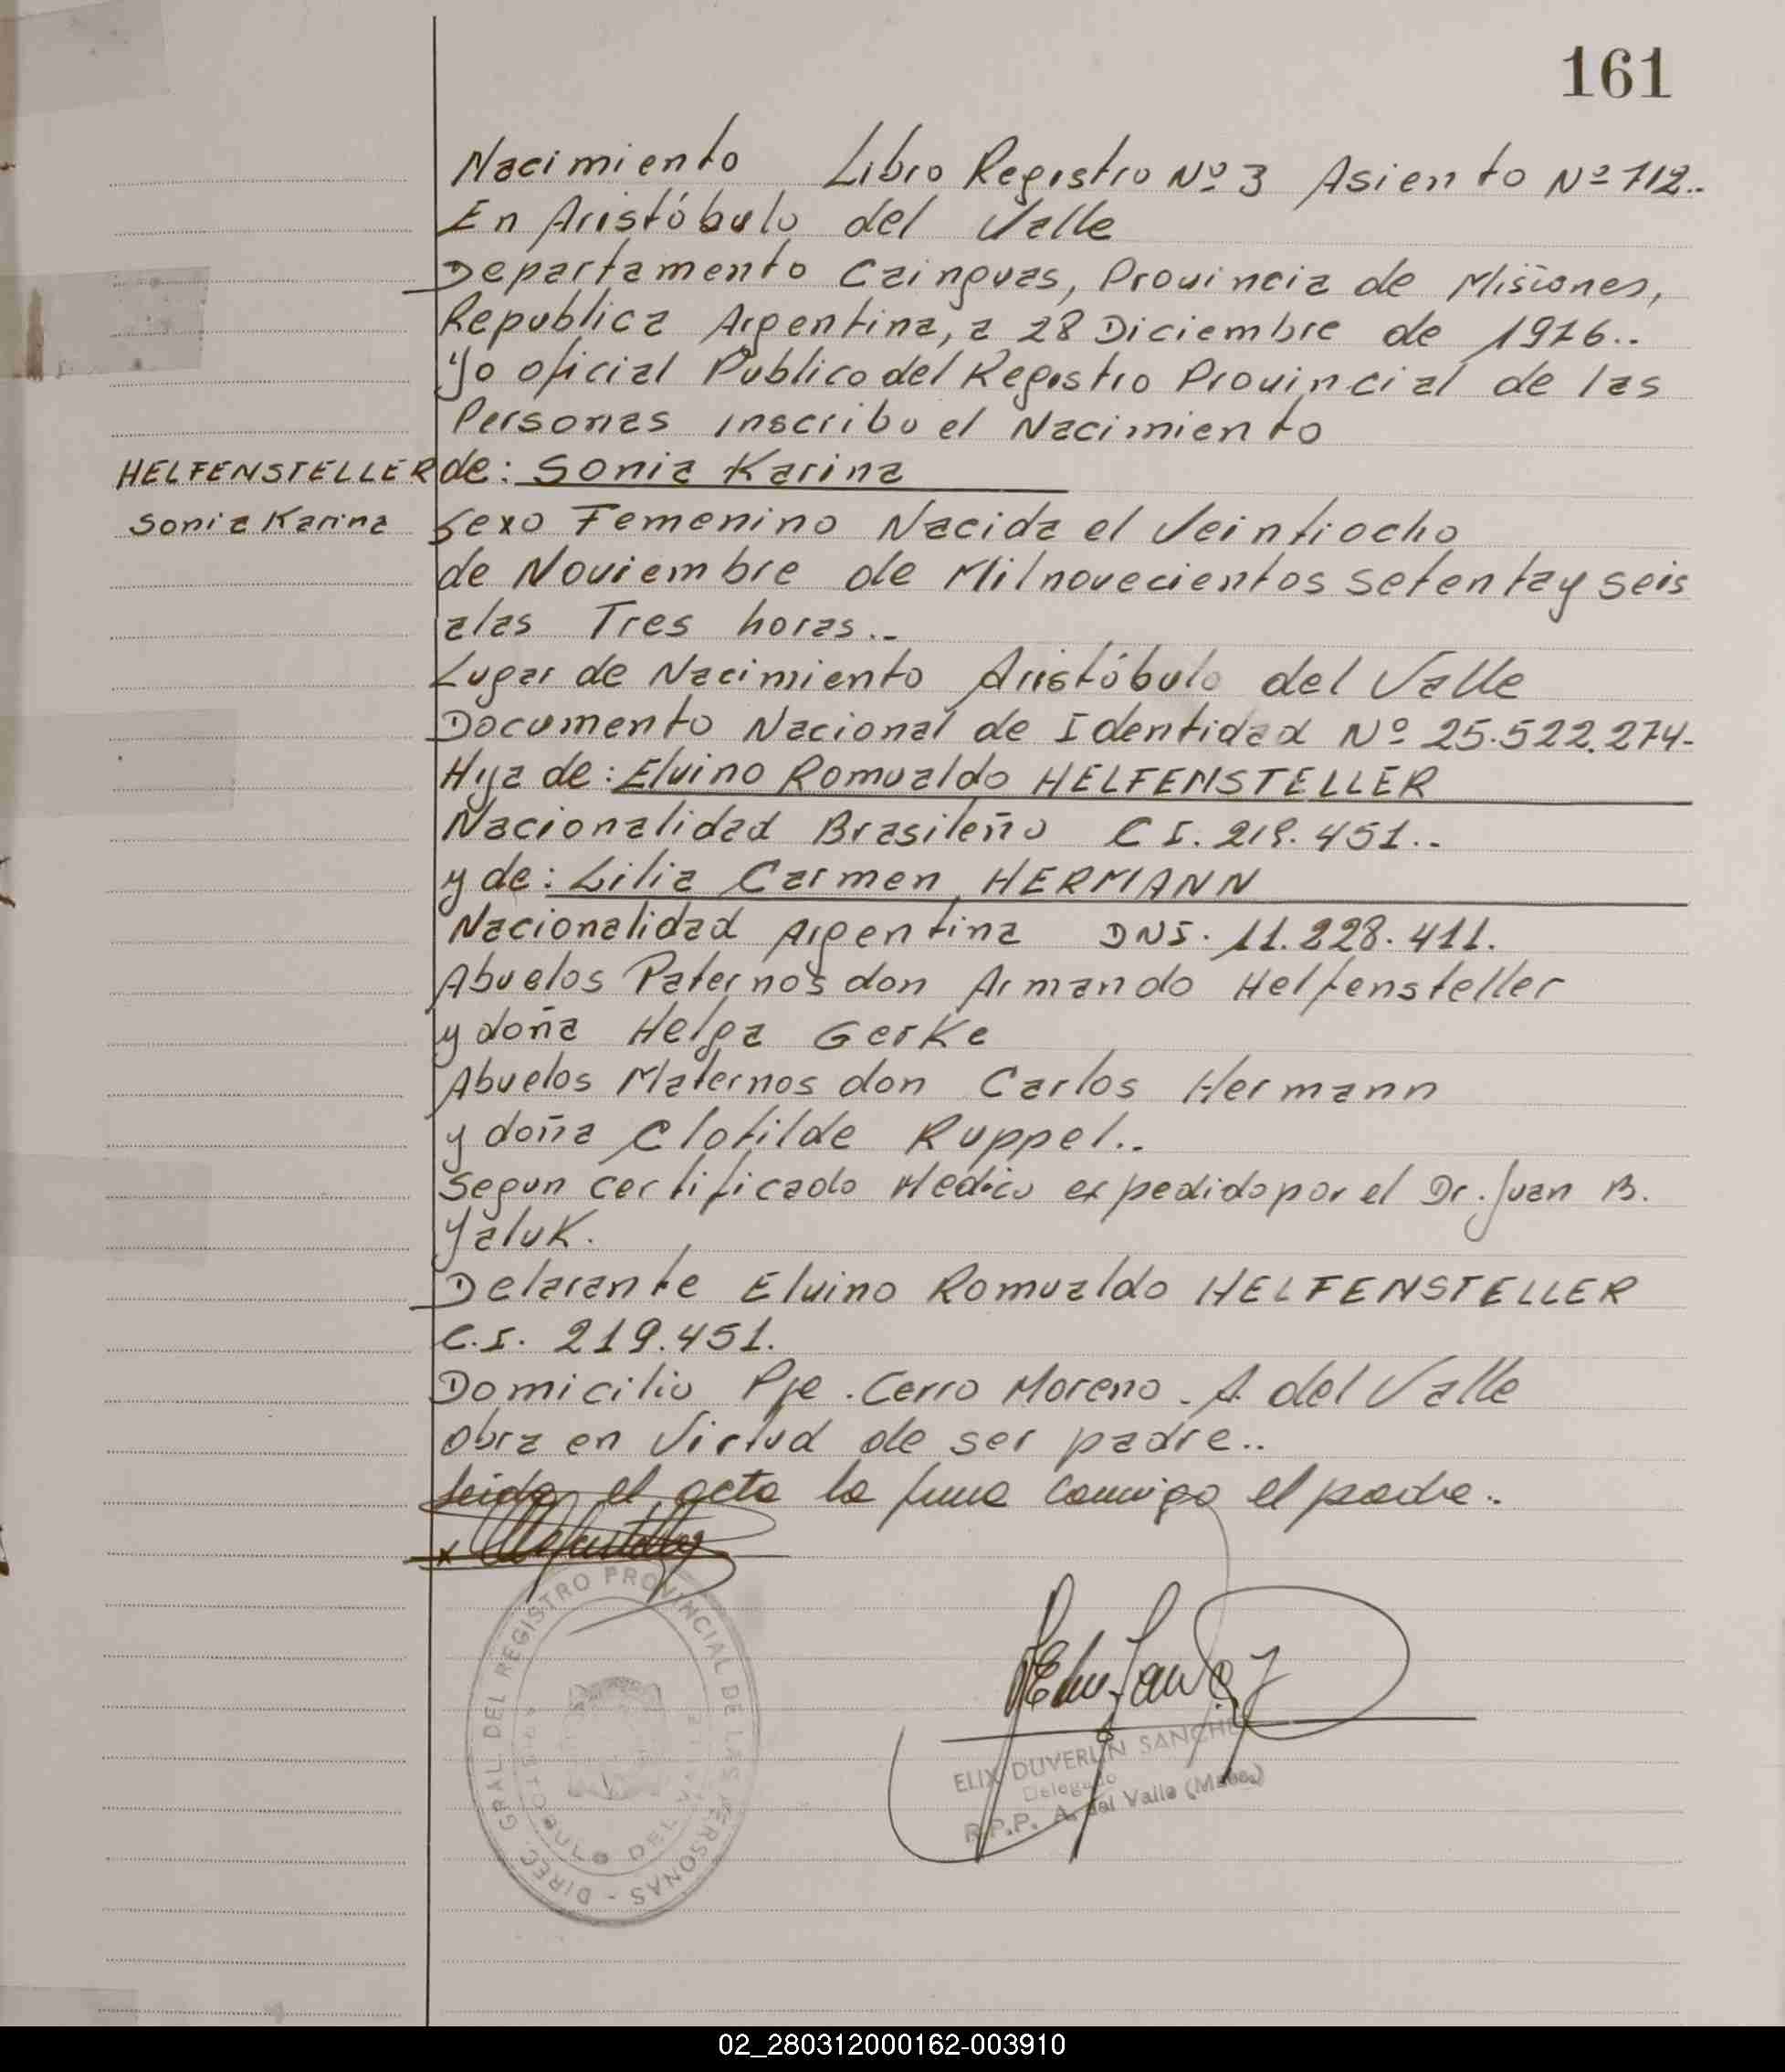 161
Nacimiento Libro Registro Nº 3 Asiento Nº 712..
En Aristóbulo del Valle
Departamento Cainguas, Provincia de Misiones,
Republica Argentina, a 28 Diciembre de 1976..
Yo oficial Publico del Registro Provincial de las
Personas inscribo el Nacimiento
HELFENSTELLER de: Sonia Karina
Sonia Karina Sexo Femenino Nacida el Veintiocho
de Noviembre de Milnovecientos setentay seis
alas Tres horas..
Lugar de Nacimiento Aristóbulo del Valle
Documento Nacional de Identidad Nº 25.522.274-
Hija de: Elvino Romualdo HELFENSTELLER
Nacionalidad Brasileño C I. 219.451..
y de: Lilia Carmen HERMANN
Nacionalidad Argentina DNI. 11.228.411.
Abuelos Paternos don Armando Helfensteller
y doña Helga Gerke
Abuelos Maternos don Carlos Hermann
y doña Clotilde Ruppel..
Segun certificado Medico expedido por el Dr. Juan B.
Yaluk.
Delarante Elvino Romualdo HELFENSTELLER
C.I. 219.451.
Domicilio Pje. Cerro Moreno. A. del Valle
Obra en Virtud de ser padre..
Leida el acta la firma conmigo el padre..
x
DIREC. GRAL. DEL REGISTRO PROVINCIAL DE LAS PERSONAS -
ARISTOBULO DEL VALLE
ELIX DUVERLIN SANCHEZ
Delegado
R.P.P. A. del Valle (Mnes.)
02_280312000162-003910